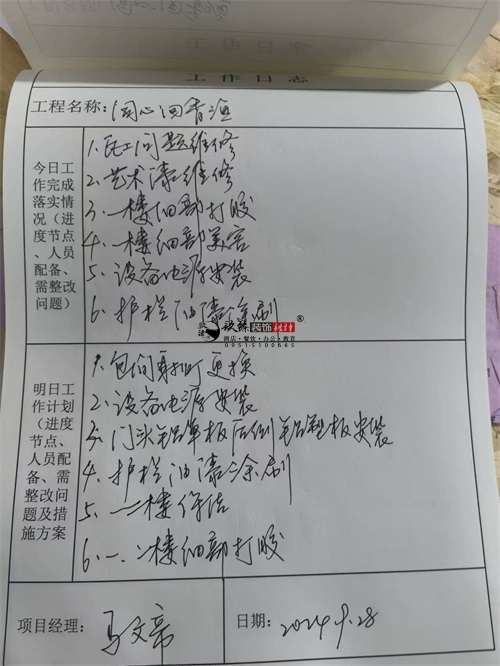 工作日志
工作日志
工程名称：同心回香渔
今日工作完成落实情况（进度节点、人员配备、需整改问题）
1、瓦工问题维修
2、艺术漆维修
3、一楼细部打胶
4、一楼细部美容
5、设备电源安装
6、护栏油漆涂刷
装饰设计®
酒店·餐饮·办公·教育
0951-5100665
明日工作计划（进度节点、人员配备、需整改问题及措施方案）
1、包间射灯更换
2、设备电源安装
3、门头铝单板后侧铝塑板安装
4、护栏油漆涂刷
5、一二楼保洁
6、一、二楼细部打胶
项目经理：马文
日期：2024.9.28